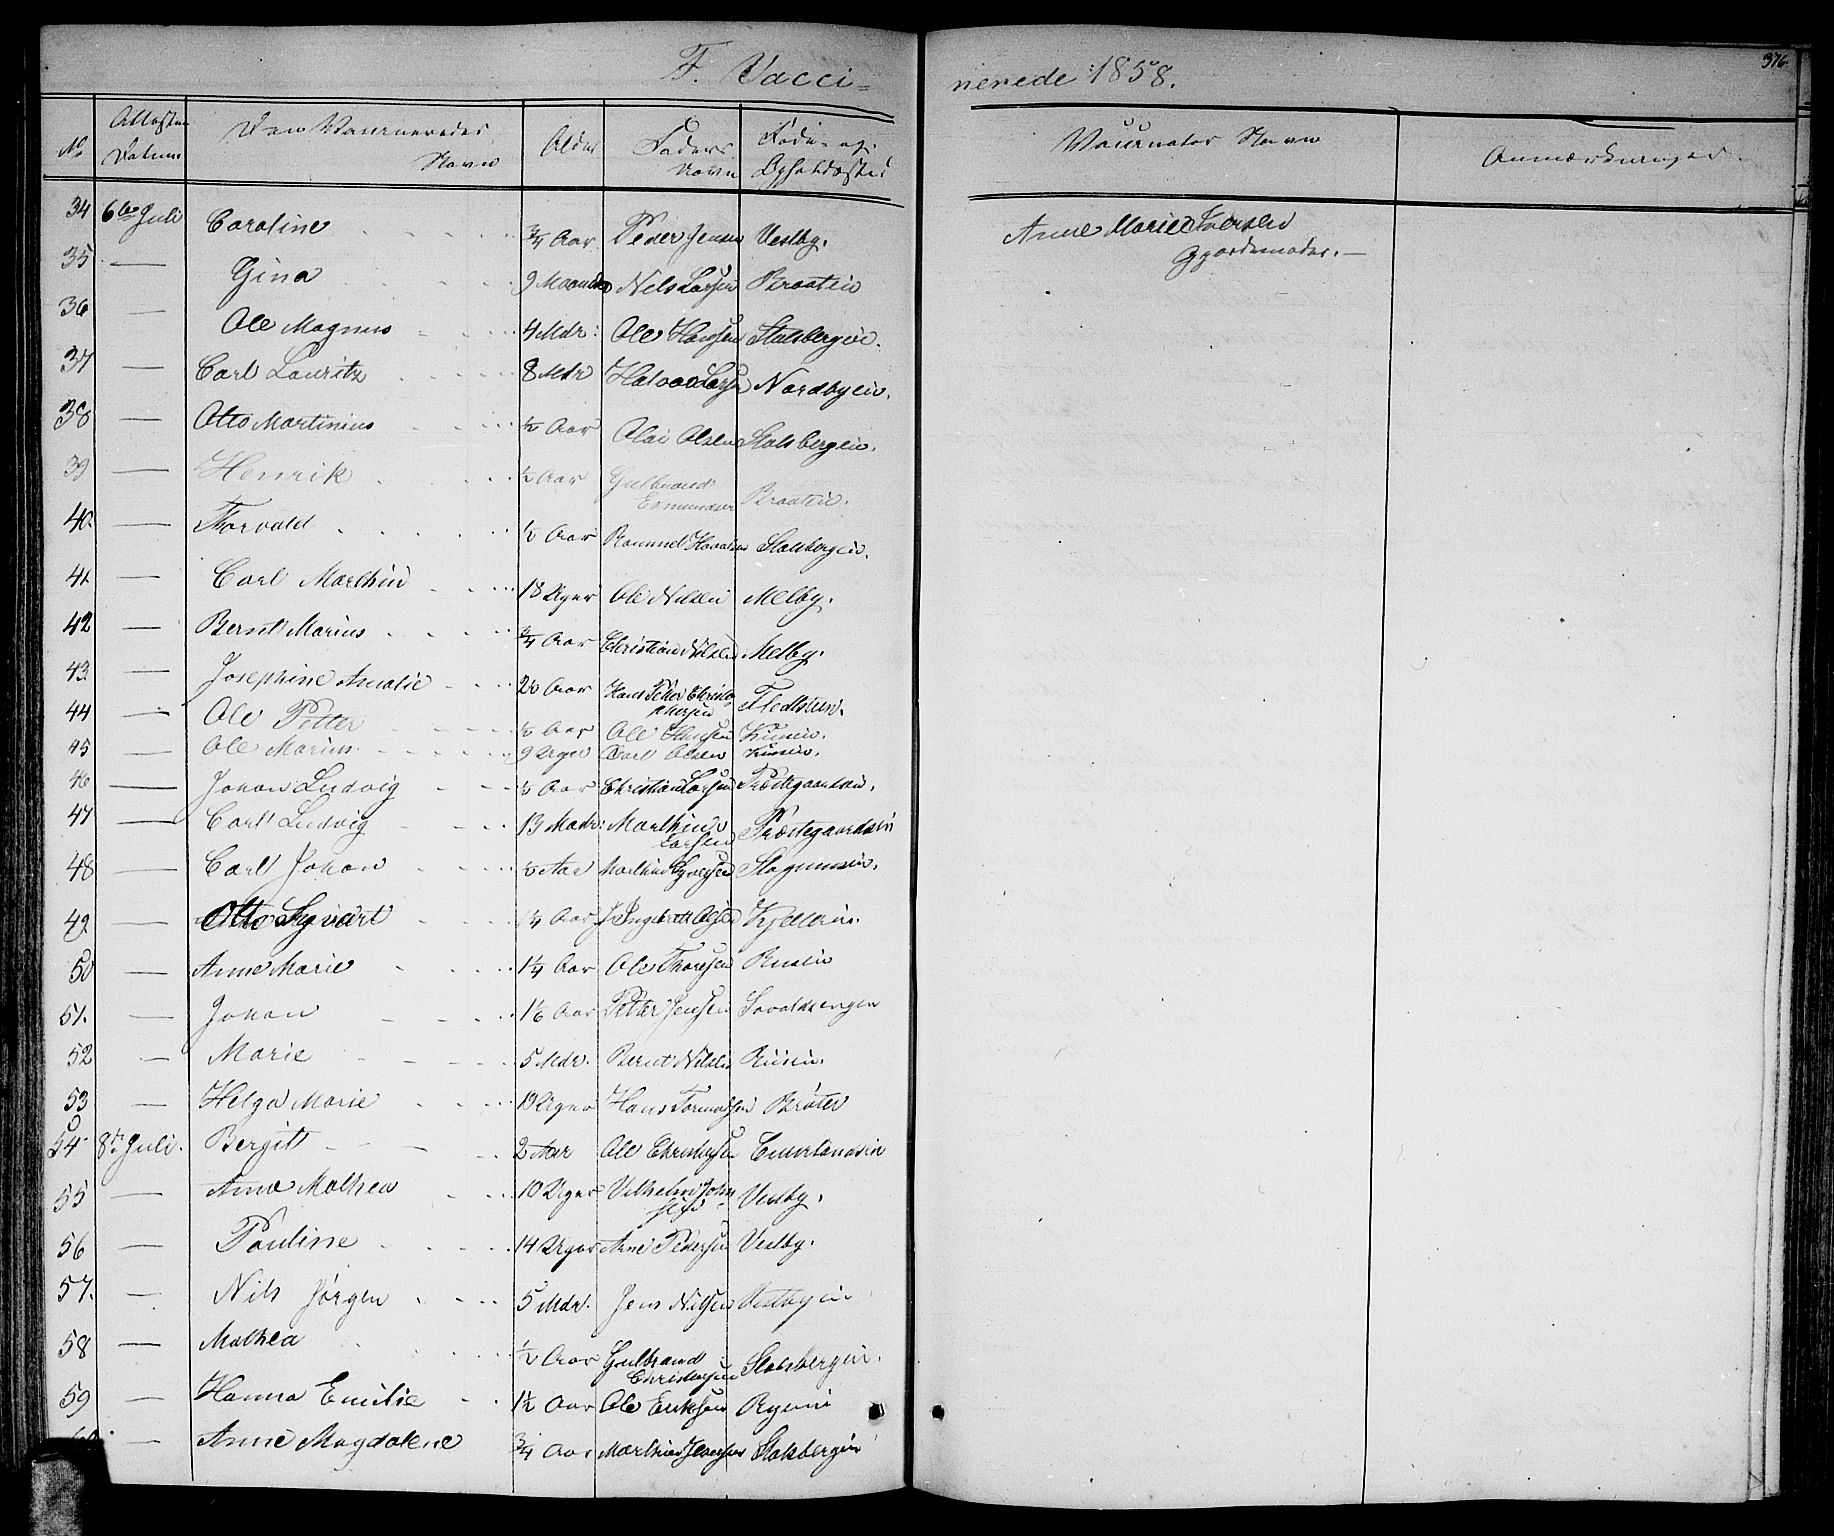 F. Vacci=
nerede 1858.
376.
No
Attestens Datum
Den Vaccineredes Navn
Alder
Faders Navn
Føde- og Opholdssted
Vaccinators Navn
Anmærkninger.
34 6te Juli Caroline ¾ Aar Peder Jensen Vestby. Anne Marie Iversen
Gjordemoder.
35 — Gina 9 Maaneder Nils Larsen Braaten
36 — Ole Magnus 4 Mdr: Ole Hansen Stalsbergeie.
37 — Carl Lauritz 8 Mdr Halvor Larsen Nordbyeie.
38 — Otto Martinius ½ Aar Olai Olsen Stalsbergeie.
39 — Henrik ½ Aar Gulbrand
Edmundsen Braaten.
40. — Torvald ½ Aar Stalsbergeie.
41 — Carl Marthin 18 Uger Ole Nilsen Melby.
42 — Bernt Marius ¾ Aar Christian Nilsen Melby.
43. — Josephine Amalie 2½ Aar Hans Petter Christo
phersen
44 — Ole Petter ½ Aar Ole Hansen
45 — Ole Marius 9 Uger Carl Olsen
46 — Johan Ludvig ½ Aar Christian Larsen Præstegaardseie.
47 — Carl Ludvig 13 Madr: Marthin
Larsen Præstegaardseie
48 — Carl Johan ½ Aar Marthin
49 — Otto Sigvart 1¼ Aar Ingebrett Olsen
50 — Anne Marie 1¼ Aar Ole Thoresen
51. — Johan 1⅙ Aar Petter Jensen
52 — Marie 5 Mdr. Bernt Nilsen
53 — Helga Marie 19 Uger Hans Bråter
54 8de Juli. Bergitt 2 Aar Ole Christensen
55 — Anne Mathea 10 Uger Vilhelm John
sen Vestby.
56 — Pauline 14 Uger Arne Pedersen Vestby.
57. — Nils Jørgen 5 Mdr. Jens Nilsen Vestbyeie
58 — Mathea ½ Aar Gulbrand
Christensen Stalsbergeie.
59 — Hanna Emilie 1½ Aar Ole Eriksen Ryeie
— Anne Magdalene ¾ Aar Marthin Stalsbergeie